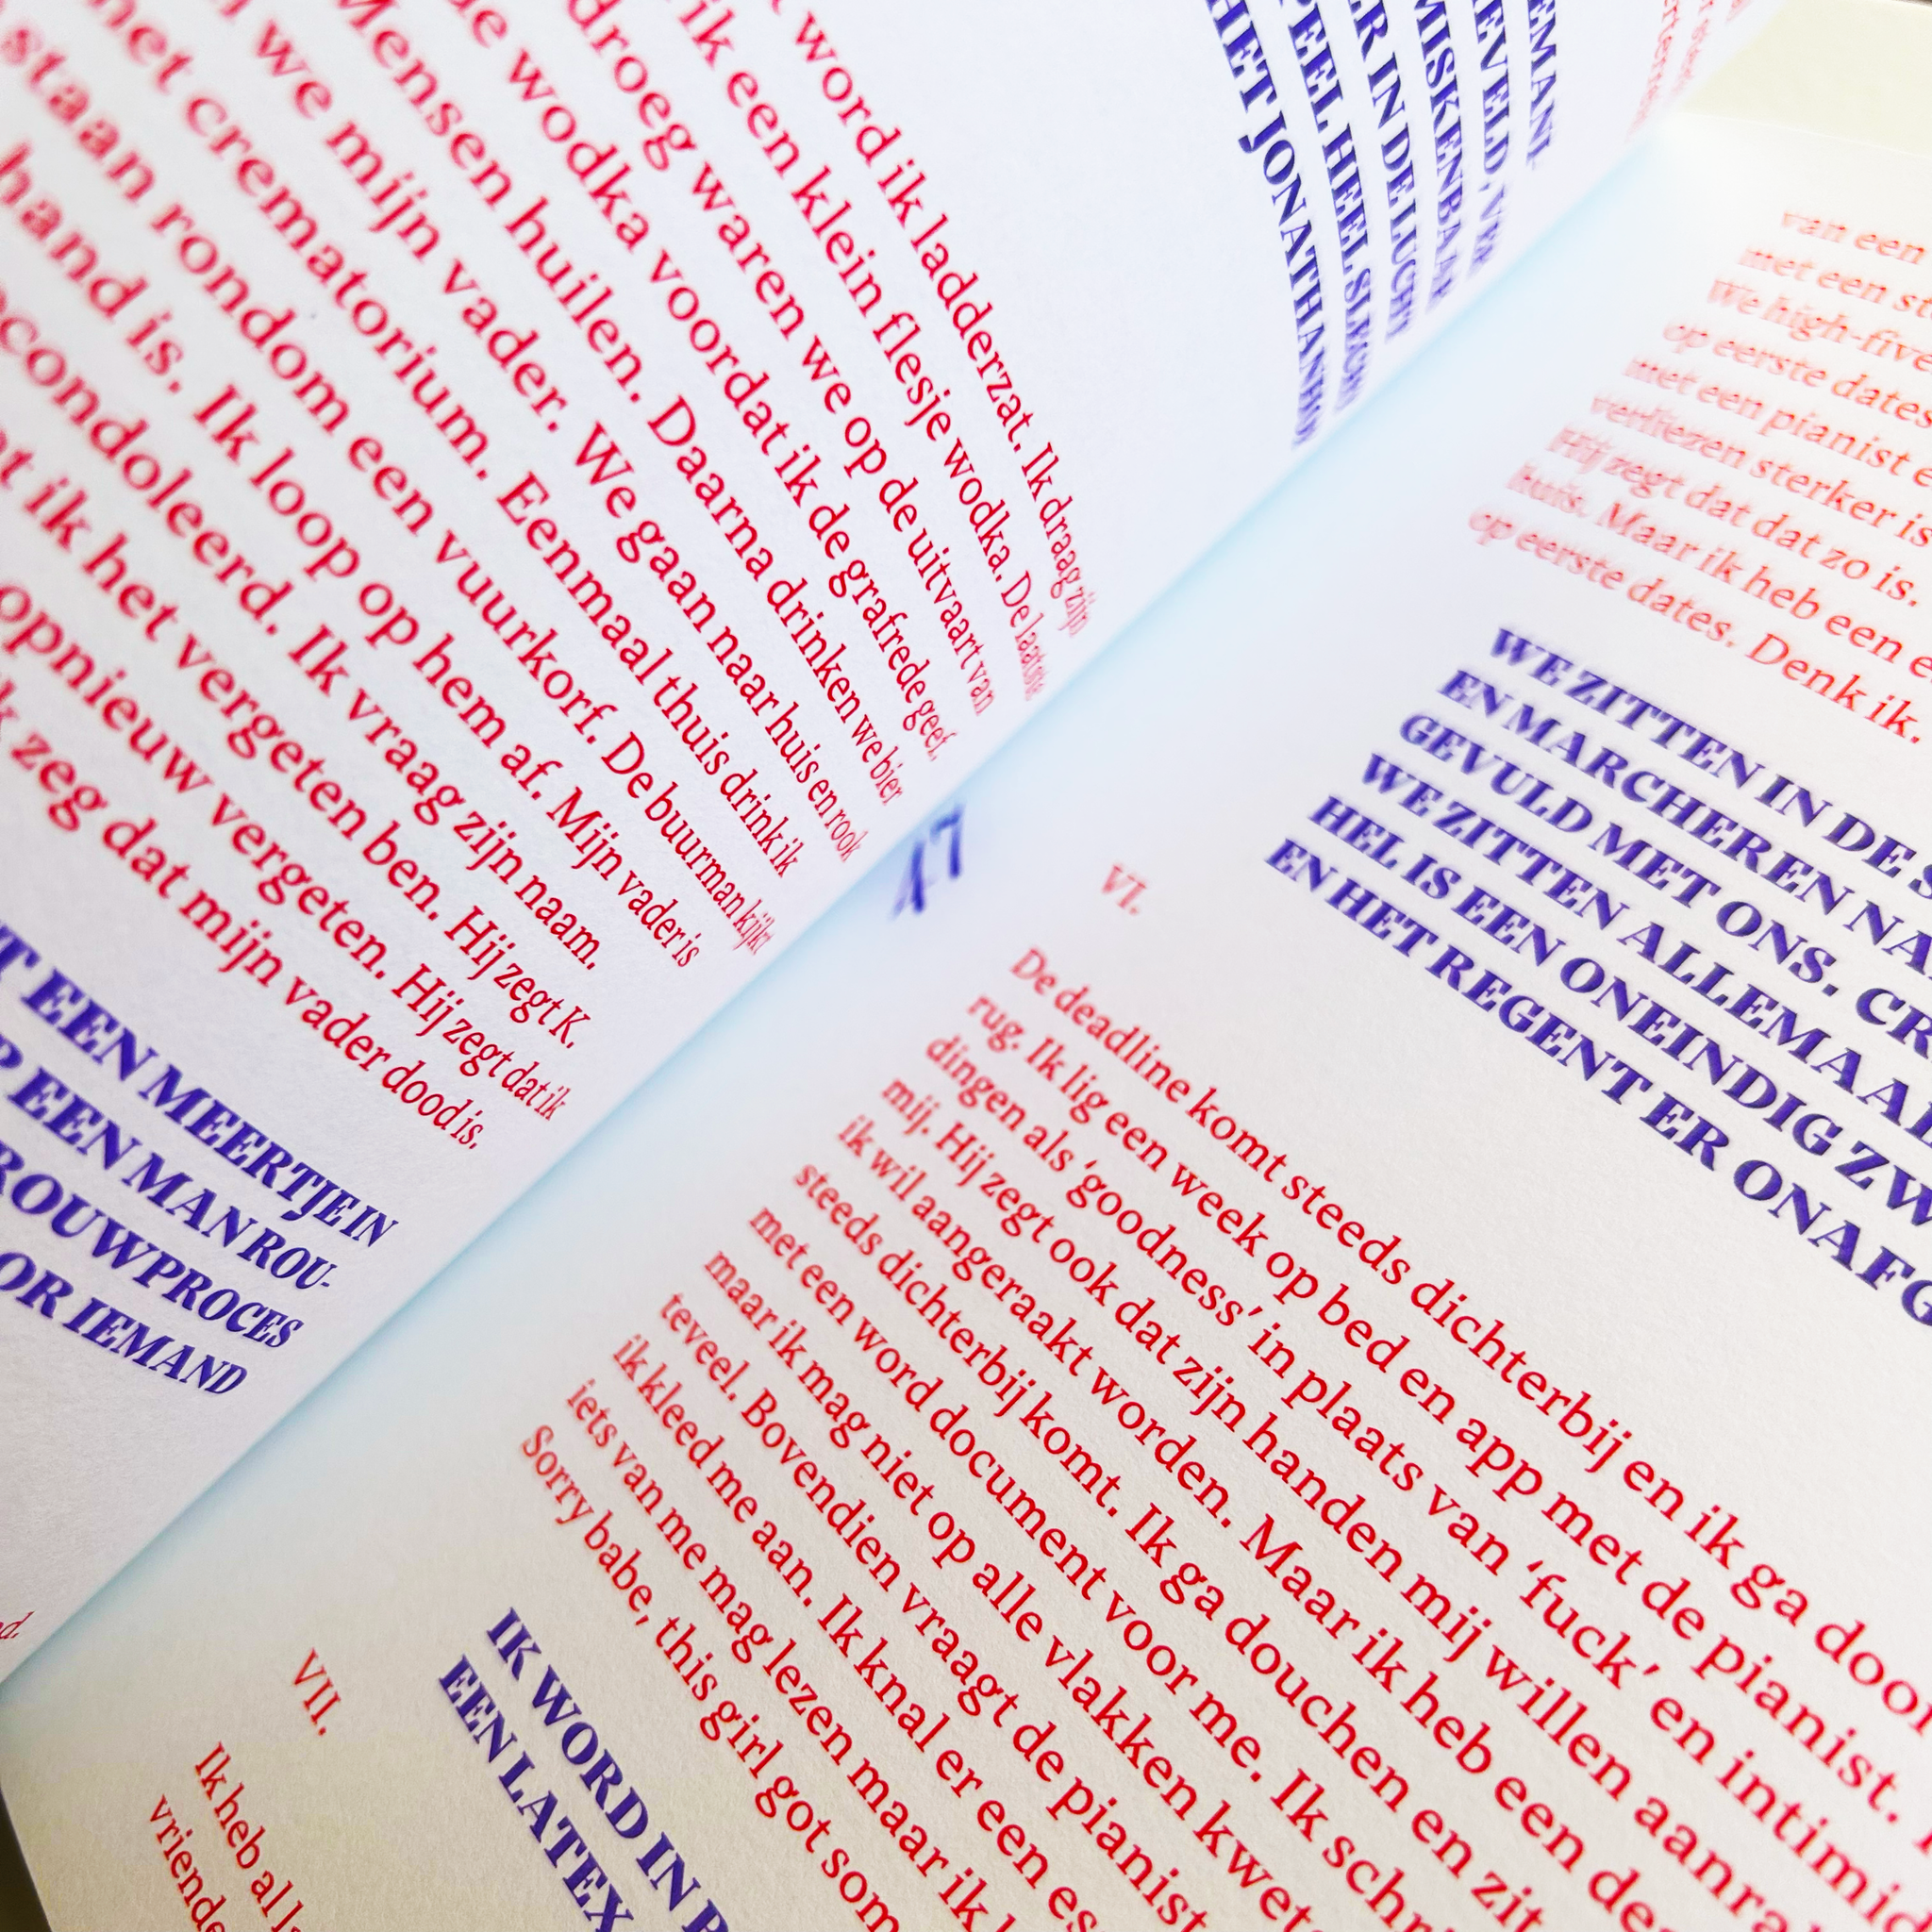 word ik ladderzat. Ik draag zijn
ik een klein flesje wodka. De laatste
droeg waren we op de uitvaart van
de wodka voordat ik de grafrede geef.
Mensen huilen. Daarna drinken we bier
we mijn vader. We gaan naar huis en rook
het crematorium. Eenmaal thuis drink ik
staan rondom een vuurkorf. De buurman kijkt
hand is. Ik loop op hem af. Mijn vader is
condoleerd. Ik vraag zijn naam.
ik het vergeten ben. Hij zegt K.
opnieuw vergeten. Hij zegt dat ik
zeg dat mijn vader dood is.
EEN MEERTJE IN
EEN MAN ROU-
ROUWPROCES
OR IEMAND
EMAND.
EVELD, VER
MISKENBAAR
ER IN DE LUCHT
PEEL HEEL SLECHT
HET JONATHAN
47
van een
met een
We high-five
op eerste dates
met een pianist
verliezen sterker is
Hij zegt dat dat zo is.
huis. Maar ik heb een
op eerste dates. Denk ik.
WE ZITTEN IN DE
EN MARCHEREN
GEVULD MET ONS.
WE ZITTEN ALLEMAAL
HEL IS EEN ONEINDIG
EN HET REGENT ER
VI.
De deadline komt steeds dichterbij en ik ga door
rug. Ik lig een week op bed en app met de pianist.
dingen als ‘goodness’ in plaats van ‘fuck’ en
mij. Hij zegt ook dat zijn handen mij willen
ik wil aangeraakt worden. Maar ik heb een
steeds dichterbij komt. Ik ga douchen en zit
met een word document voor me. Ik
maar ik mag niet op alle vlakken
teveel. Bovendien vraagt de pianist
ik kleed me aan. Ik knal er een
iets van me mag lezen maar ik
Sorry babe, this girl got
IK WORD IN
EEN LATEX
VII.
Ik heb al